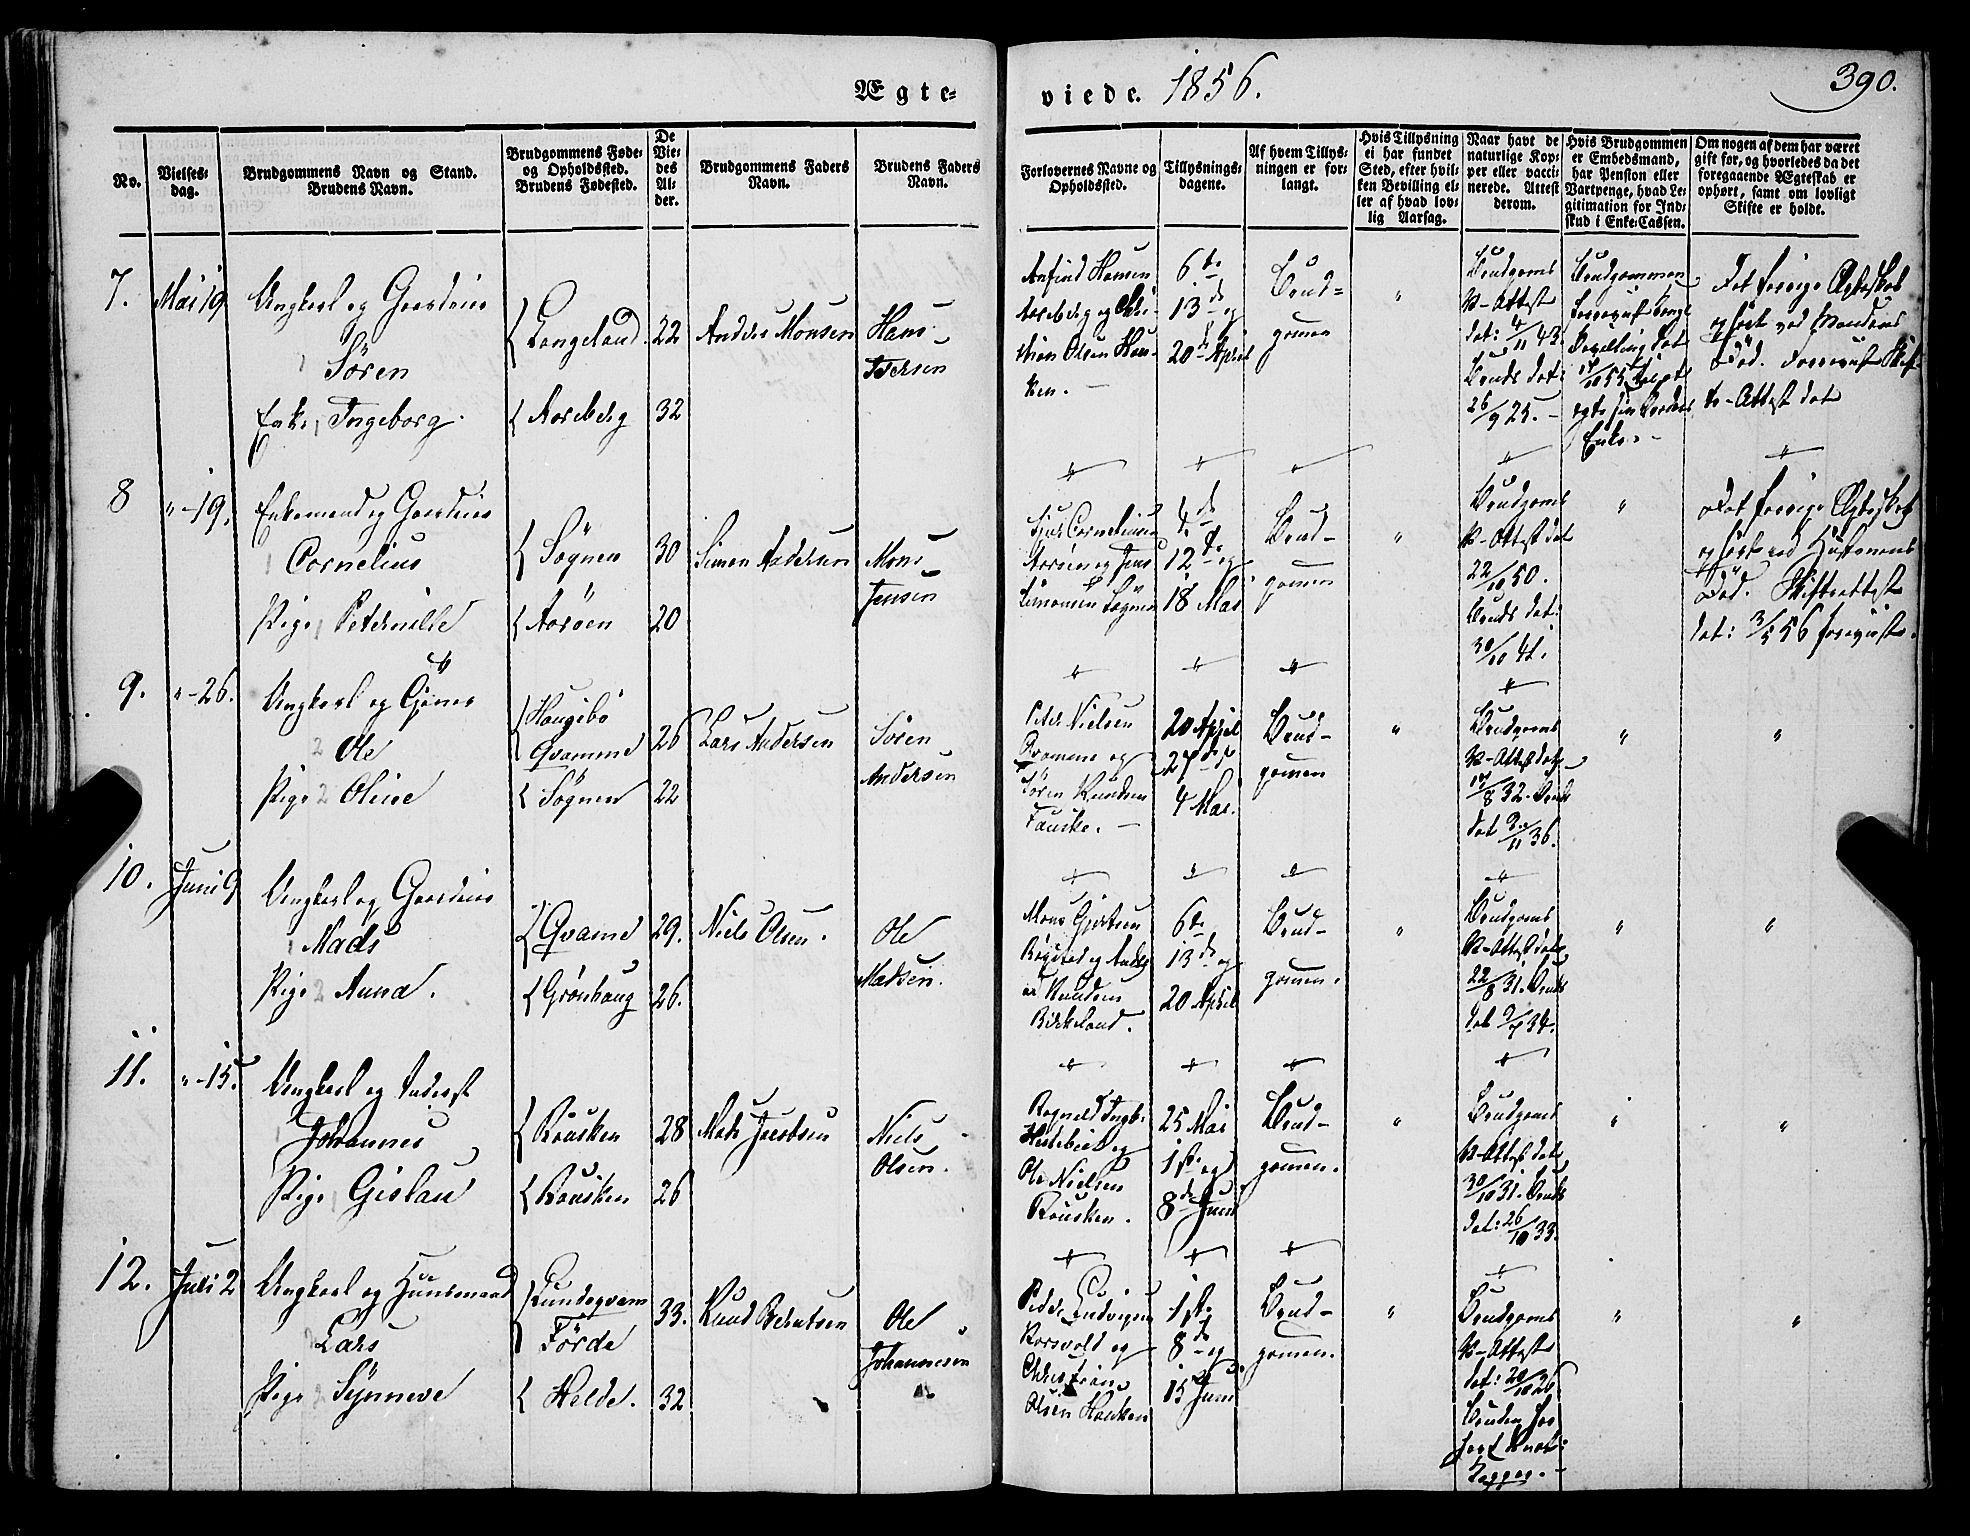 Ægte-
viede. 1856.
390.
No.
Vielses-
dag.
Brudgommens Navn og Stand.
Brudens Navn.
Brudgommens Føde-
og Opholdssted.
Brudens Fødested.
De
Vie-
des
Al-
der.
Brudgommens Faders
Navn.
Brudens Faders
Navn.
Forlovernes Navne og
Opholdssted.
Tillysnings-
dagene.
Af hvem Tillys-
ningen er for-
langt.
Hvis Tillysning
ei har fundet
Sted, efter hvil-
ken Bevilling el-
ler af hvad lov-
lig Aarsag.
Naar havt de
naturlige Kop-
per eller vacci-
nerede. Attest
derom.
Hvis Brudgommen
er Embedsmand,
har Pension eller
Vartpenge, hvad Le-
gitimation for Ind-
skud i Enke-Cassen.
Om nogen af dem har været
gift for, og hvorledes da det
foregaaende Ægteskab er
ophørt, samt om lovligt
Skifte er holdt.
7.
Mai 19
Ungkarl og Gaardbr
Søren
Enke Ingeborg.
Langeland.
Aareberg
22
32
Anders Monsen
Hans
Iversen
Anfind Hansen
Aareberg og Chri-
stian Olsen Hau-
ken. —
6te
13de og
20de April
Brud-
gomen
"
Brudgoms
V-Attest
dat: 4/11 43.
Bruds dat:
26/9 25. -
Brudgommen
forevist Kongl
Bevilling dat
Enke. -
Det forrige Ægteskab
ophørt ved Mandens
Død. Forevist Skif-
te-Attest dat
8
" - 19.
Enkemand og Gaardbr
Cornelius
Pige Peternille
Sognen
Aarøen
30
20
Simon Andersen
Mons
Jensen
Aarøen og Jens
Simonsen Sognen
4de
12te og
18 Mai
Brud-
gomen
"
Brudgoms
V-Attest dat
22/10 50.
Bruds dat:
30/10 41.
"
Det forrige Ægteskab
ophørt ved Hustruens
Død. Skifteattest
dat: 3/5 56 forevist.
9.
" - 26.
Ungkarl og
Ole
Pige Oline
Haugebø
Qvamme
Sognen
26
22
Lars Andersen
Søren
Andersen
Peter Nielsen
Qvamme og
Søren Knudsen
Fauske. —
20 April
27de &
4 Mai.
Brud-
gomen
"
Brudgoms
V-Attest dat
17/8 32. Bruds
dat 2/11 36.
"
"
10.
Juni 9
Ungkarl og Gaardbr
Mads
Pige Anna.
Qvame
Grønhaug
29.
26.
Niels Olsen.
Ole
Madsen.
Mons Gjertsen
Knudsen
Birkeland.
6te
13de og
20 April
Brud-
gomen.
"
Brudgoms
V-Attest dat
22/8 31. Bruds
dat 2/7 34.
"
"
11.
" - 15.
Ungkarl og Inderst
Johannes
Pige Gislau
Rousken
Rousken
28
26
Mads Jacobsen
Niels
Olsen.
Ole Nielsen
Rousken.
25 Mai
1ste og
8de Juni
Brud-
gomen.
"
Brudgoms
V-Attest dat
30/10 31. Bruds
dat: 26/10 33.
"
"
12.
Juli 2
Ungkarl og Huusmand
Lars
Pige Synneve
Lundeqvam
Førde
Helde.
33.
32
Knud Berntsen
Ole
Johannesen
Peder Ludvigsen
Korsvold og
Christian
Olsen Hauken
1ste
8de og
15 Juni
Brud-
gomen.
"
Brudgoms
V-Attest
dat: 20/10 26
Bruden har
"
"